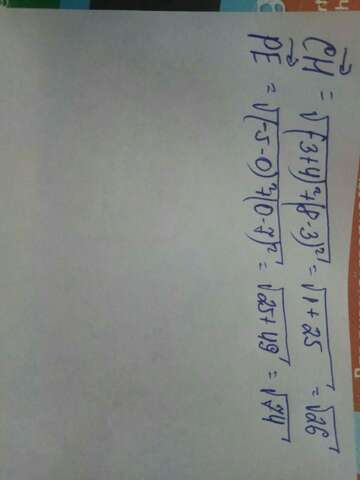 CH = √(-3+4)²+(8-3)² = √1+25 = √26
PE = √(-5-0)²+(0-7)² = √25+49 = √74